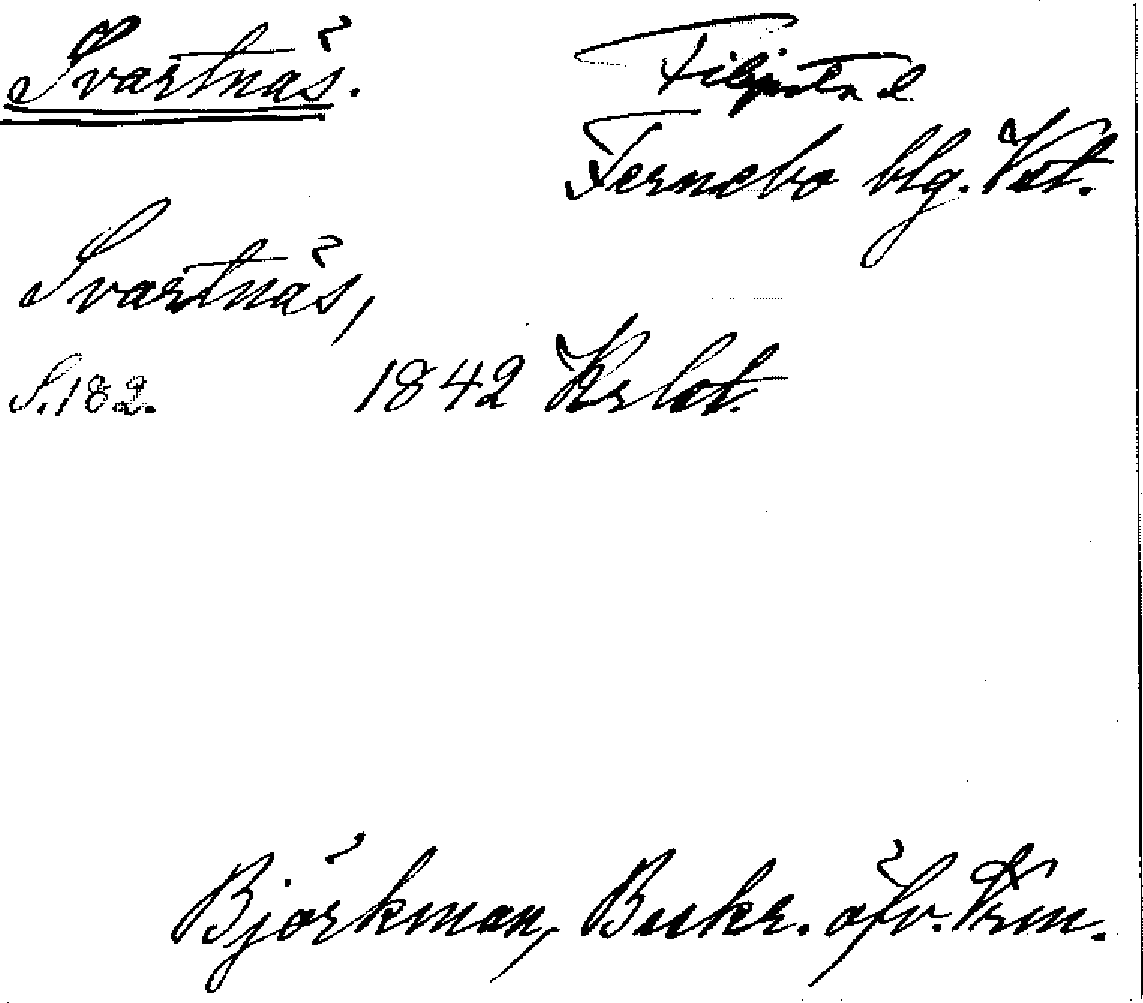 Svartnäs.
Filipstad
Fernebo blg. Vrt.
Svartnäs,
S.182. 1842 Krlot.
Björkman, Beskr. öfv. Vrm.